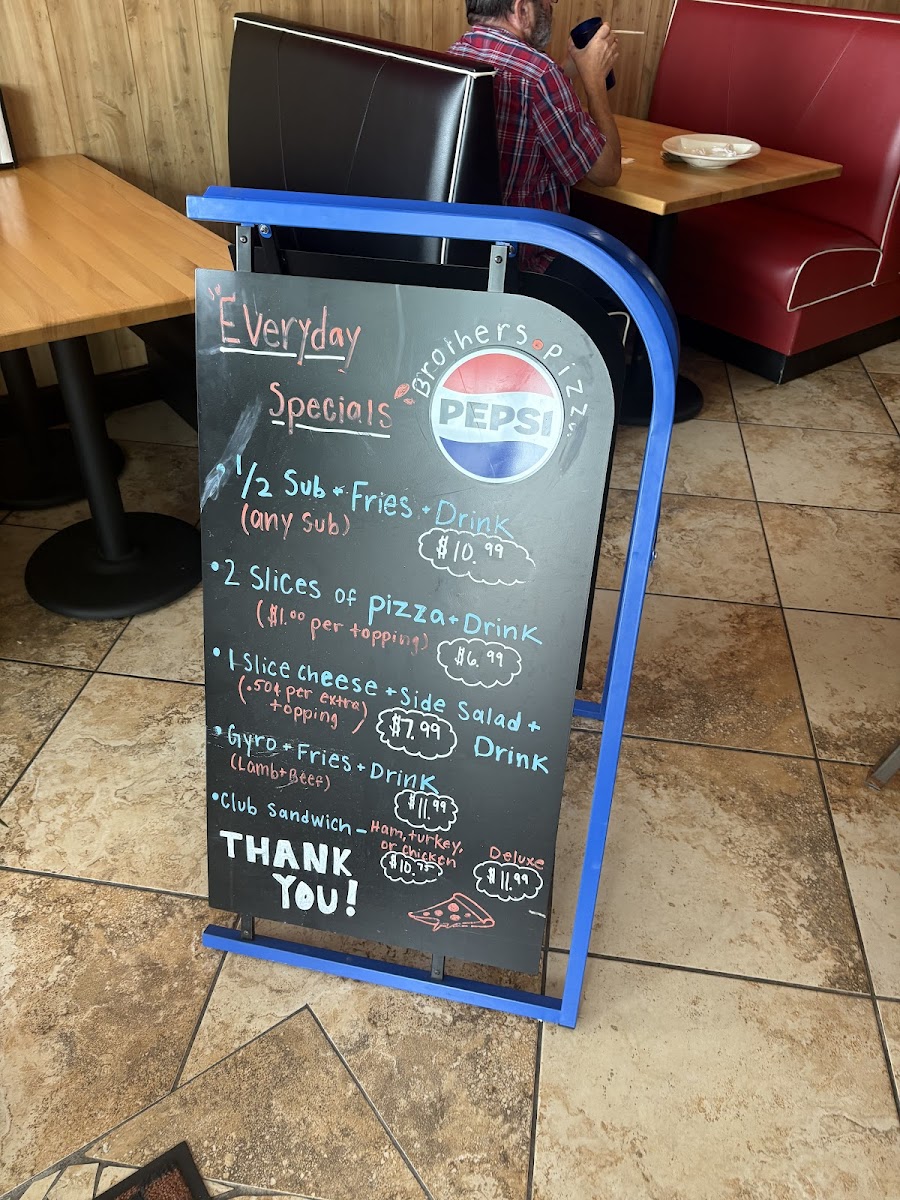 Everyday
Specials
Brothers Pizza
PEPSI
1/2 Sub + Fries + Drink
(any Sub)
$10.99
• 2 Slices of pizza + Drink
($1.00 per topping)
$6.99
• 1 Slice cheese + Side Salad + Drink
(.50¢ per extra topping)
$7.99
• Gyro + Fries + Drink
(Lamb + Beef)
$11.99
• Club Sandwich - Ham, turkey, or chicken
$10.75
Deluxe
$11.99
THANK
YOU!